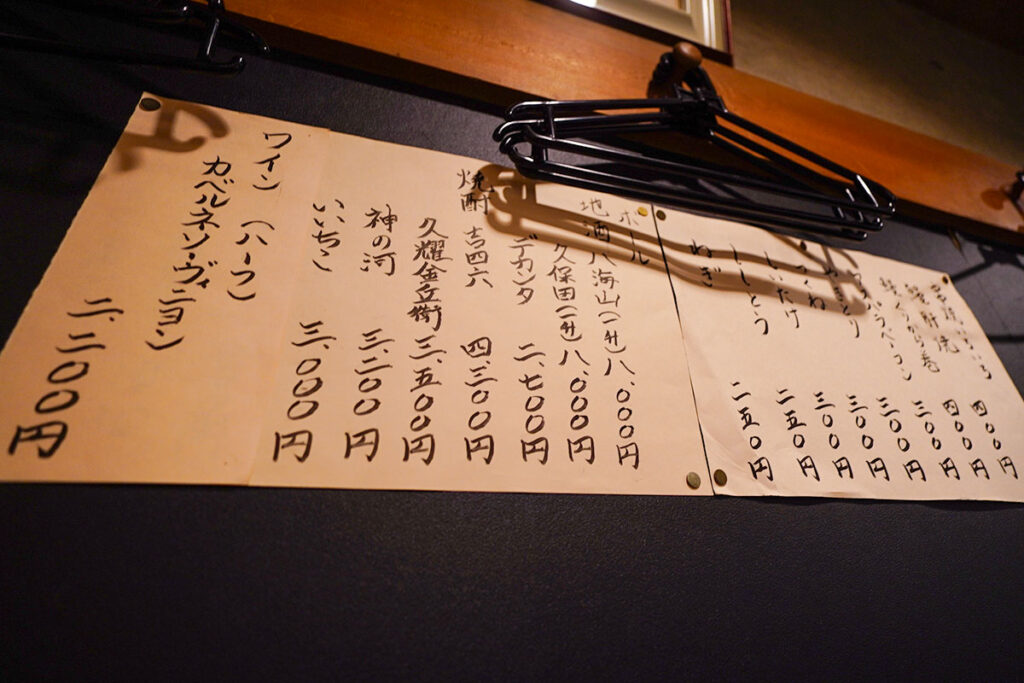 肝焼 四〇〇円
くりから巻 四〇〇円
ベーコン 三〇〇円
三〇〇円
つくね 三〇〇円
しいたけ 三〇〇円
ししとう 二五〇円
ねぎ 二五〇円
ボール
地酒 八海山(一升) 八、〇〇〇円
久保田(一升) 八、〇〇〇円
デカンタ 二、七〇〇円
焼酎 吉四六 四、三〇〇円
久耀金兵衛 三、五〇〇円
神の河 三、二〇〇円
いいちこ 三、〇〇〇円
ワイン(ハーフ)
カベルネソーヴィニヨン)
二、二〇〇円